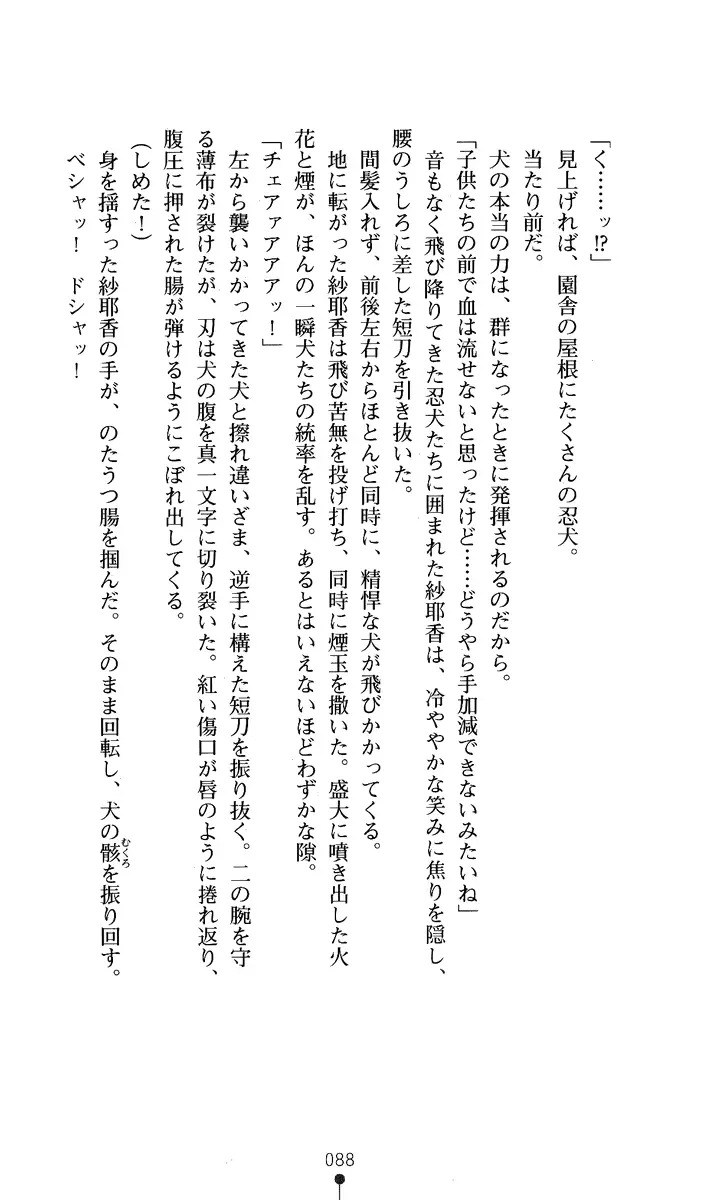 「く……ッ!?」
見上げれば、園舎の屋根にたくさんの忍犬。
当たり前だ。
犬の本当の力は、群になったときに発揮されるのだから。
「子供たちの前で血は流せないと思ったけど……どうやら手加減できないみたいね」
音もなく飛び降りてきた忍犬たちに囲まれた紗耶香は、冷ややかな笑みに焦りを隠し、
腰のうしろに差した短刀を引き抜いた。
間髪入れず、前後左右からほとんど同時に、精悍な犬が飛びかかってくる。
地に転がった紗耶香は飛び苦無を投げ打ち、同時に煙玉を撒いた。盛大に噴き出した火
花と煙が、ほんの一瞬犬たちの統率を乱す。あるとはいえないほどわずかな隙。
「チェアァアアアッ！」
左から襲いかかってきた犬と擦れ違いざま、逆手に構えた短刀を振り抜く。二の腕を守
る薄布が裂けたが、刃は犬の腹を真一文字に切り裂いた。紅い傷口が唇のように捲れ返り、
腹圧に押された腸が弾けるようにこぼれ出してくる。
(しめた！)
身を揺すった紗耶香の手が、のたうつ腸を掴んだ。そのまま回転し、犬の骸むくろを振り回す。
ベシャッ！　ドシャッ！
088